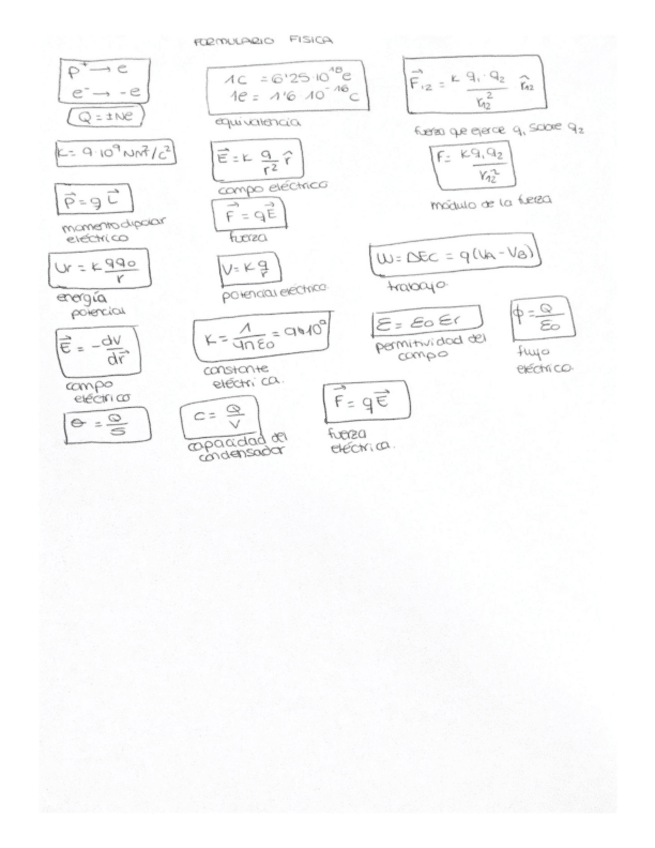 FORMULARIO FISICA
p⁺ → e
e⁻ → -e
Q = ±Ne
1C = 6'25·10¹⁸e
1e = 1'6 10⁻¹⁶C
equivalencia
F⃗₁₂ = K q₁·q₂ / r₁₂² r̂₁₂
fuerza que ejerce q₁ sobre q₂
K = 9·10⁹ Nm²/c²
E⃗ = K q/r² r̂
campo eléctrico
F = K q₁ q₂ / r₁₂²
módulo de la fuerza
P⃗ = q L⃗
momento dipolar
eléctrico
F⃗ = qE⃗
fuerza
Ur = K qq₀/r
energía
potencial
V = K q/r
potencial eléctrico
W = ΔEC = q(VA - VB)
trabajo
E⃗ = -dV/dr⃗
campo
eléctrico
K = 1/4πε₀ = 9·10⁹
constante
eléctrica.
ε = ε₀ εr
permitividad del
campo
ϕ = Q/ε₀
flujo
eléctrico
= Q/S
C = Q/V
capacidad del
condensador
F⃗ = qE⃗
fuerza
eléctrica.